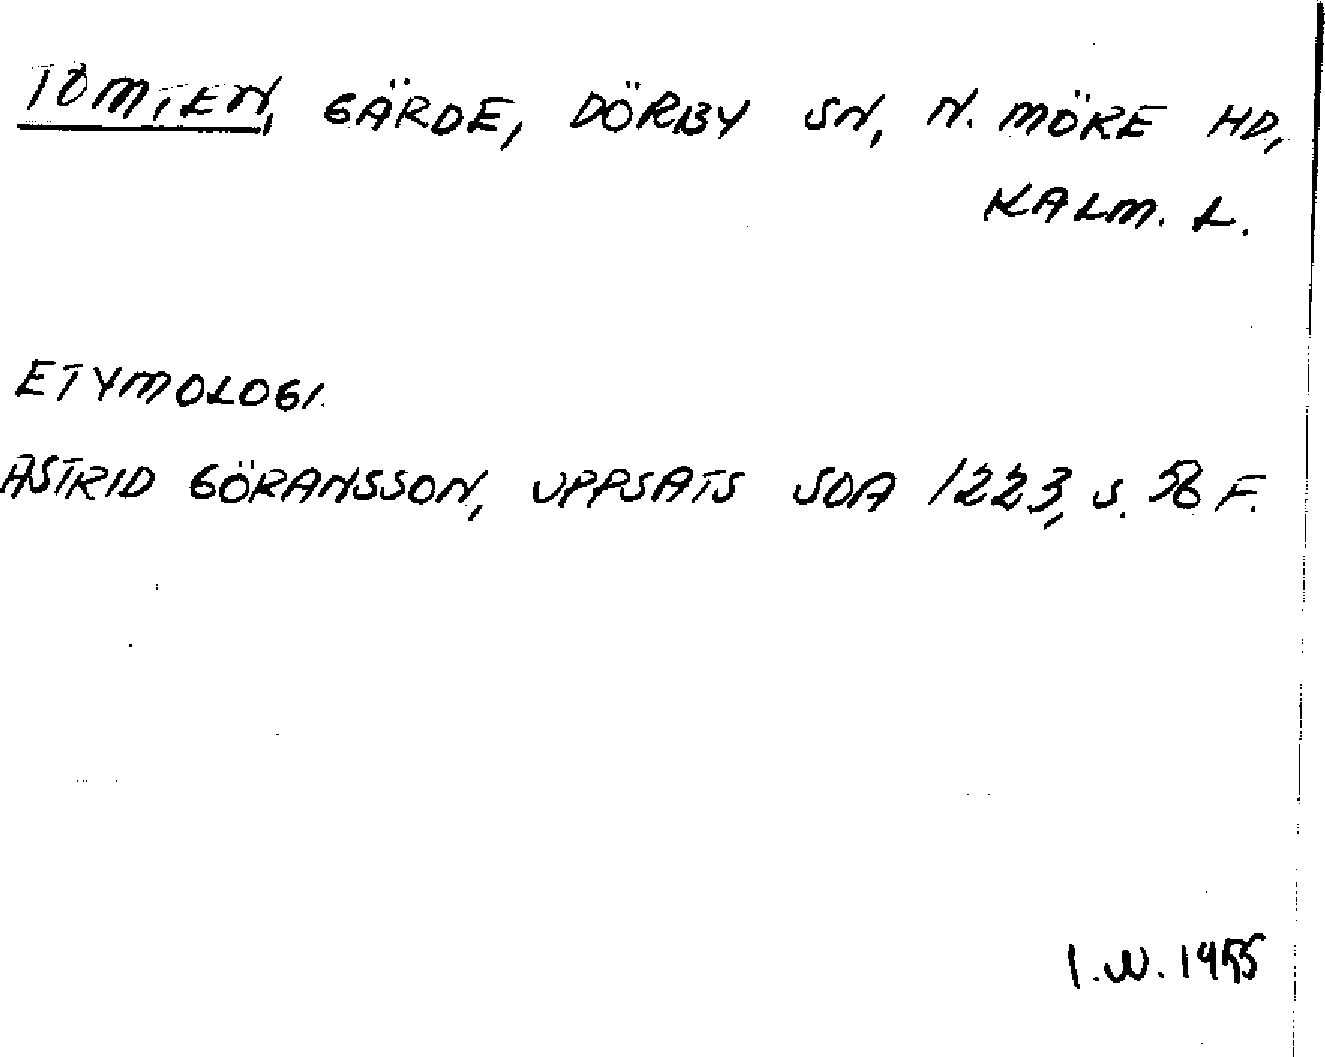 TOMTEN, GÄRDE, DÖRBY SN, N. MÖRE HD,
KALM. L.
ETYMOLOGI.
ASTRID GÖRANSSON, UPPSATS SOA 1223, S. 58 F.
I.W. 1955